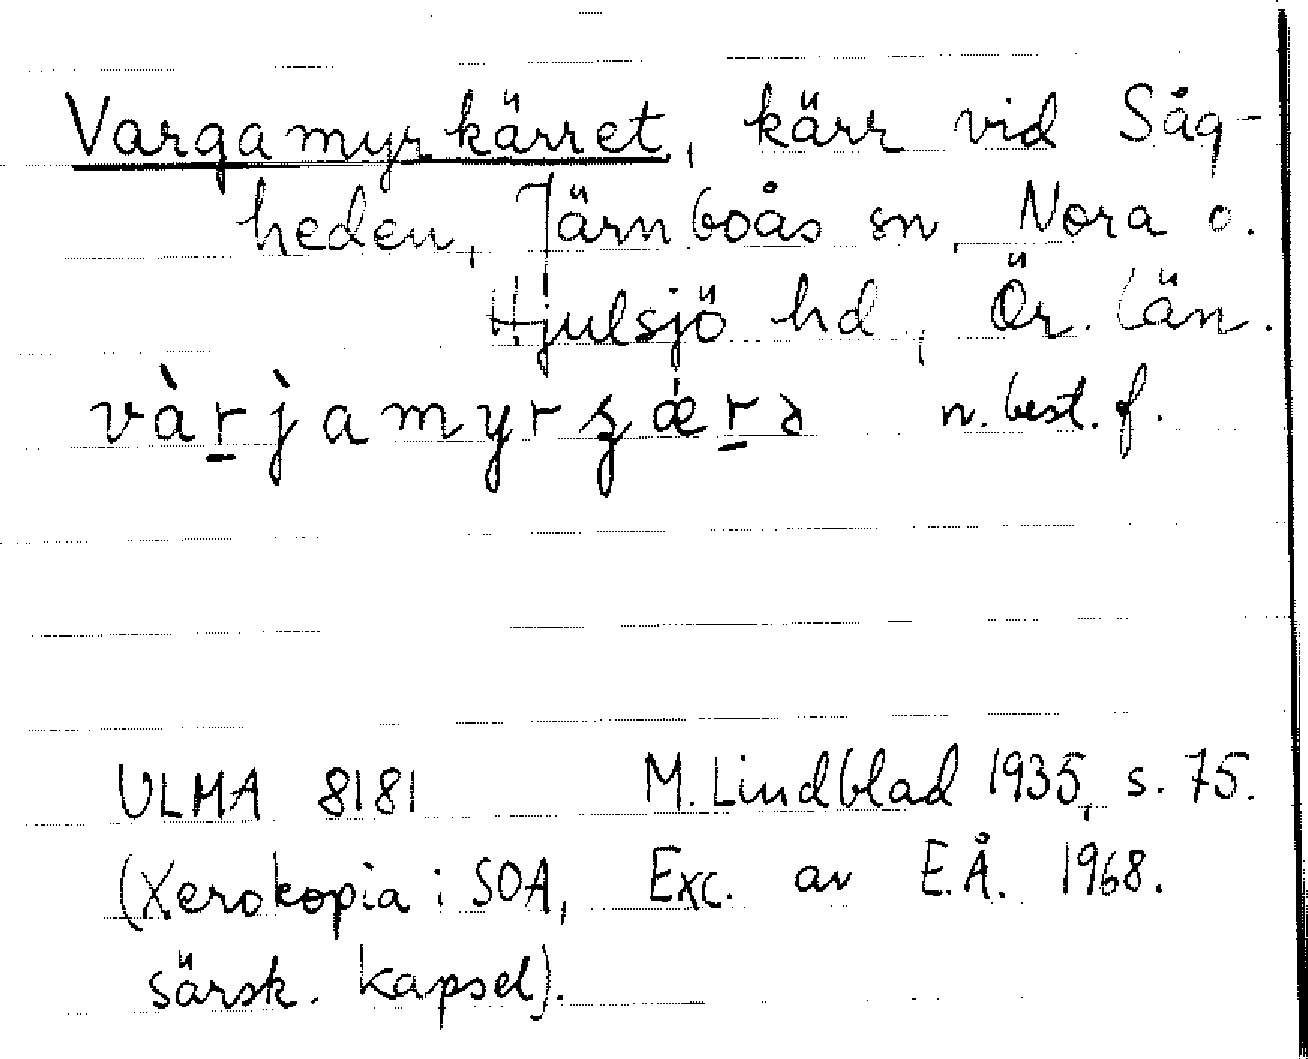 Vargamyrkärret, kärr vid Såg-
heden, Järnboås sn, Nora o.
Hjulsjö hd, Ör. län.
n. best. f.
ULMA 8181 M. Lindblad 1935, s. 75.
(Xerokopia i SOA, Exc. av E.Å. 1968.
särsk. kapsel).